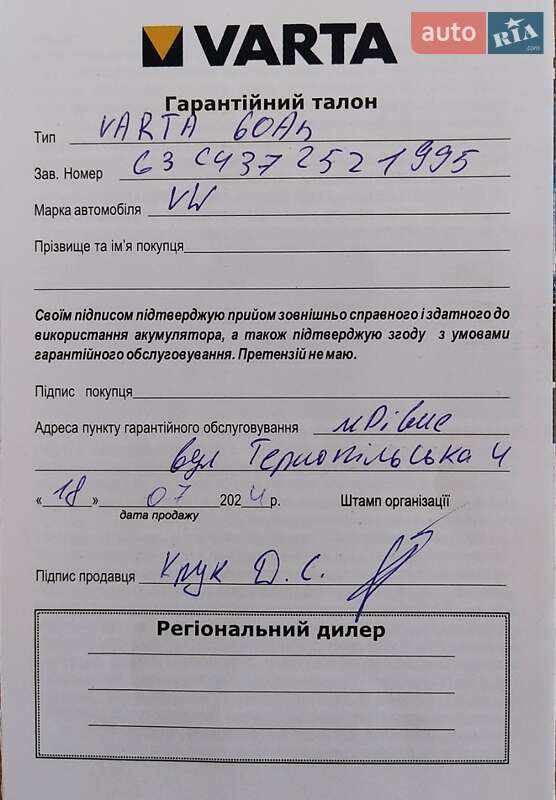 VARTA
auto RIA .com
Гарантійний талон
Тип VARTA 60Ah
Зав. Номер G3C4372521995
Марка автомобіля VW
Прізвище та ім'я покупця
Своїм підписом підтверджую прийом зовнішньо справного і здатного до
використання акумулятора, а також підтверджую згоду з умовами
гарантійного обслуговування. Претензій не маю.
Підпис покупця
Адреса пункту гарантійного обслуговування м Рівне
вул Тернопільська 4
« 18 » 07 2024 р. Штамп організації
дата продажу
Підпис продавця Крук Д. С.
Регіональний дилер